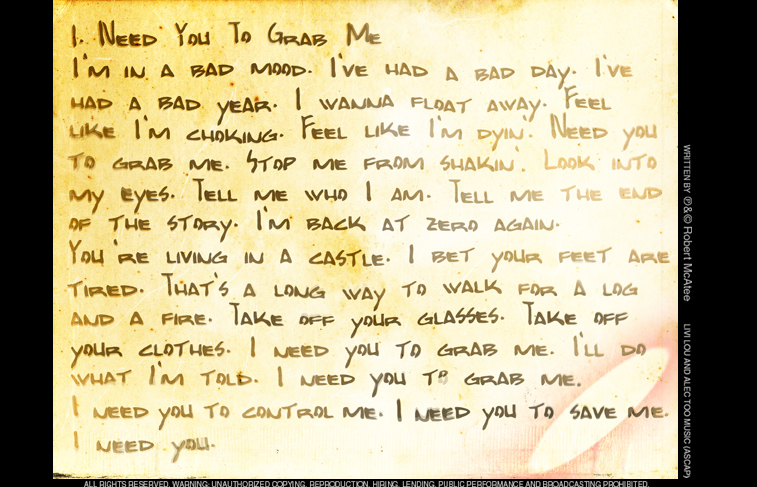 1. Need You To Grab Me
I'm in a bad mood. I've had a bad day. I've
had a bad year. I wanna float away. Feel
like I'm choking. Feel like I'm dyin'. Need you
to grab me. Stop me from shakin'. Look into
my eyes. Tell me who I am. Tell me the end
of the story. I'm back at zero again.
You're living in a castle. I bet your feet are
tired. That's a long way to walk for a log
and a fire. Take off your glasses. Take off
your clothes. I need you to grab me. I'll do
what I'm told. I need you to grab me.
I need you to control me. I need you to save me.
I need you.
WRITTEN BY ℗&© Robert McAtee
LIVI LOU AND ALEC TOO MUSIC (ASCAP)
ALL RIGHTS RESERVED. WARNING: UNAUTHORIZED COPYING, REPRODUCTION, HIRING, LENDING, PUBLIC PERFORMANCE AND BROADCASTING PROHIBITED.